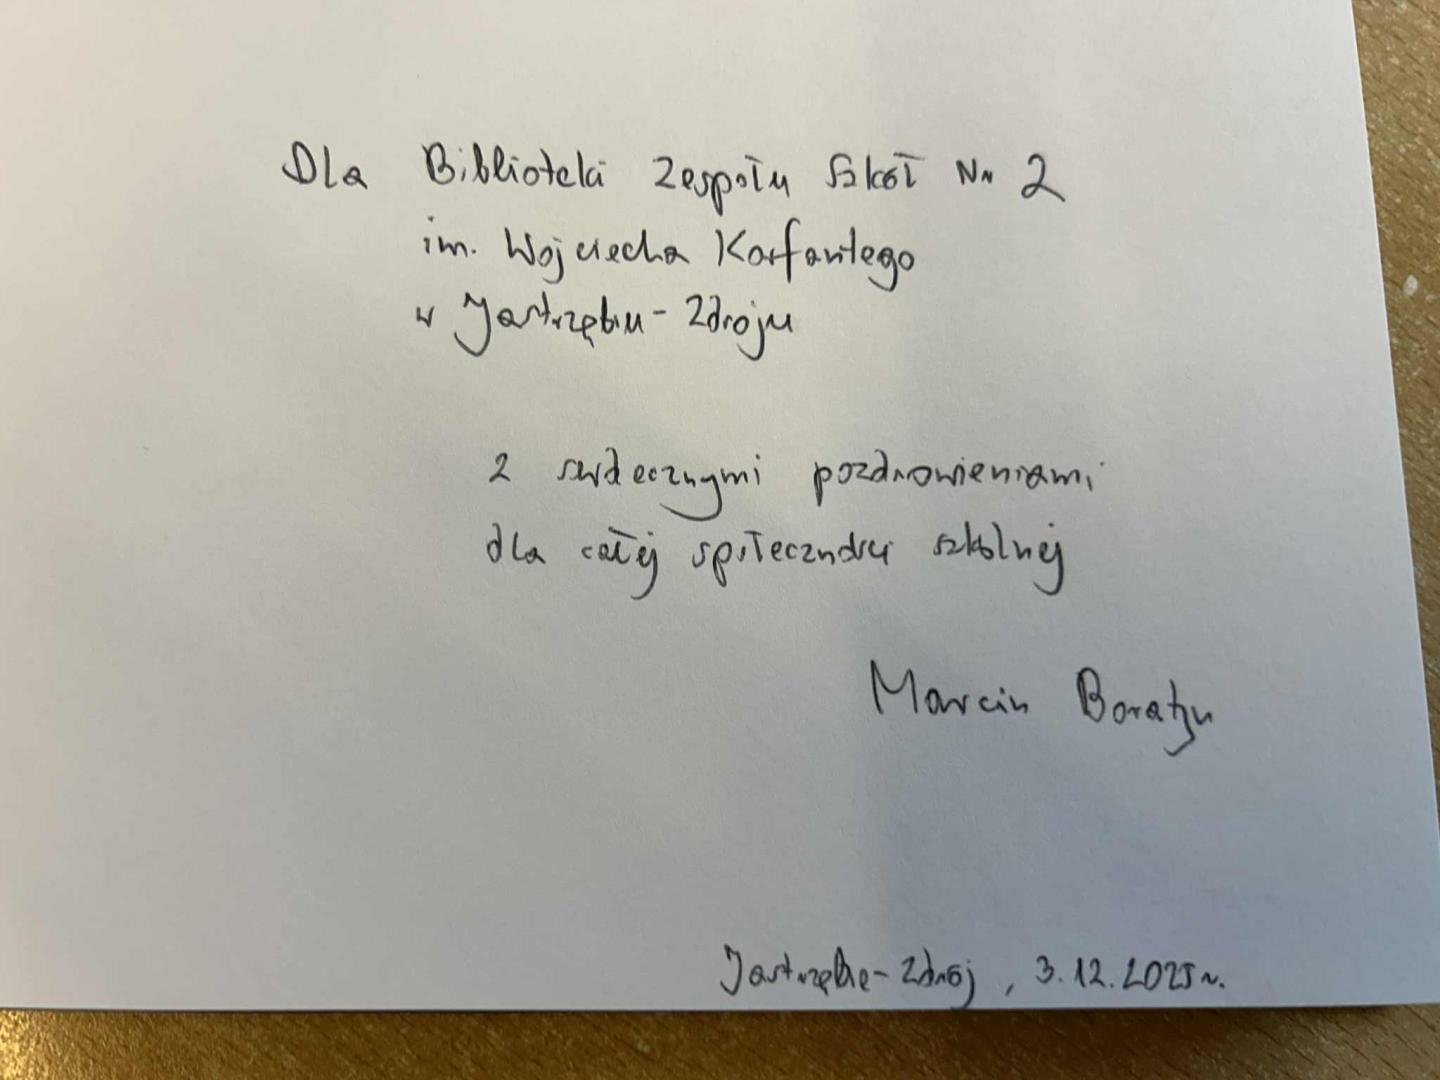 Dla Biblioteki Zespołu Szkół Nr 2
im. Wojciecha Korfantego
w Jastrzębiu-Zdroju
z serdecznymi pozdrowieniami
dla całej społeczności szkolnej
Marcin Boratyn
Jastrzębie-Zdrój, 3.12.2025 r.